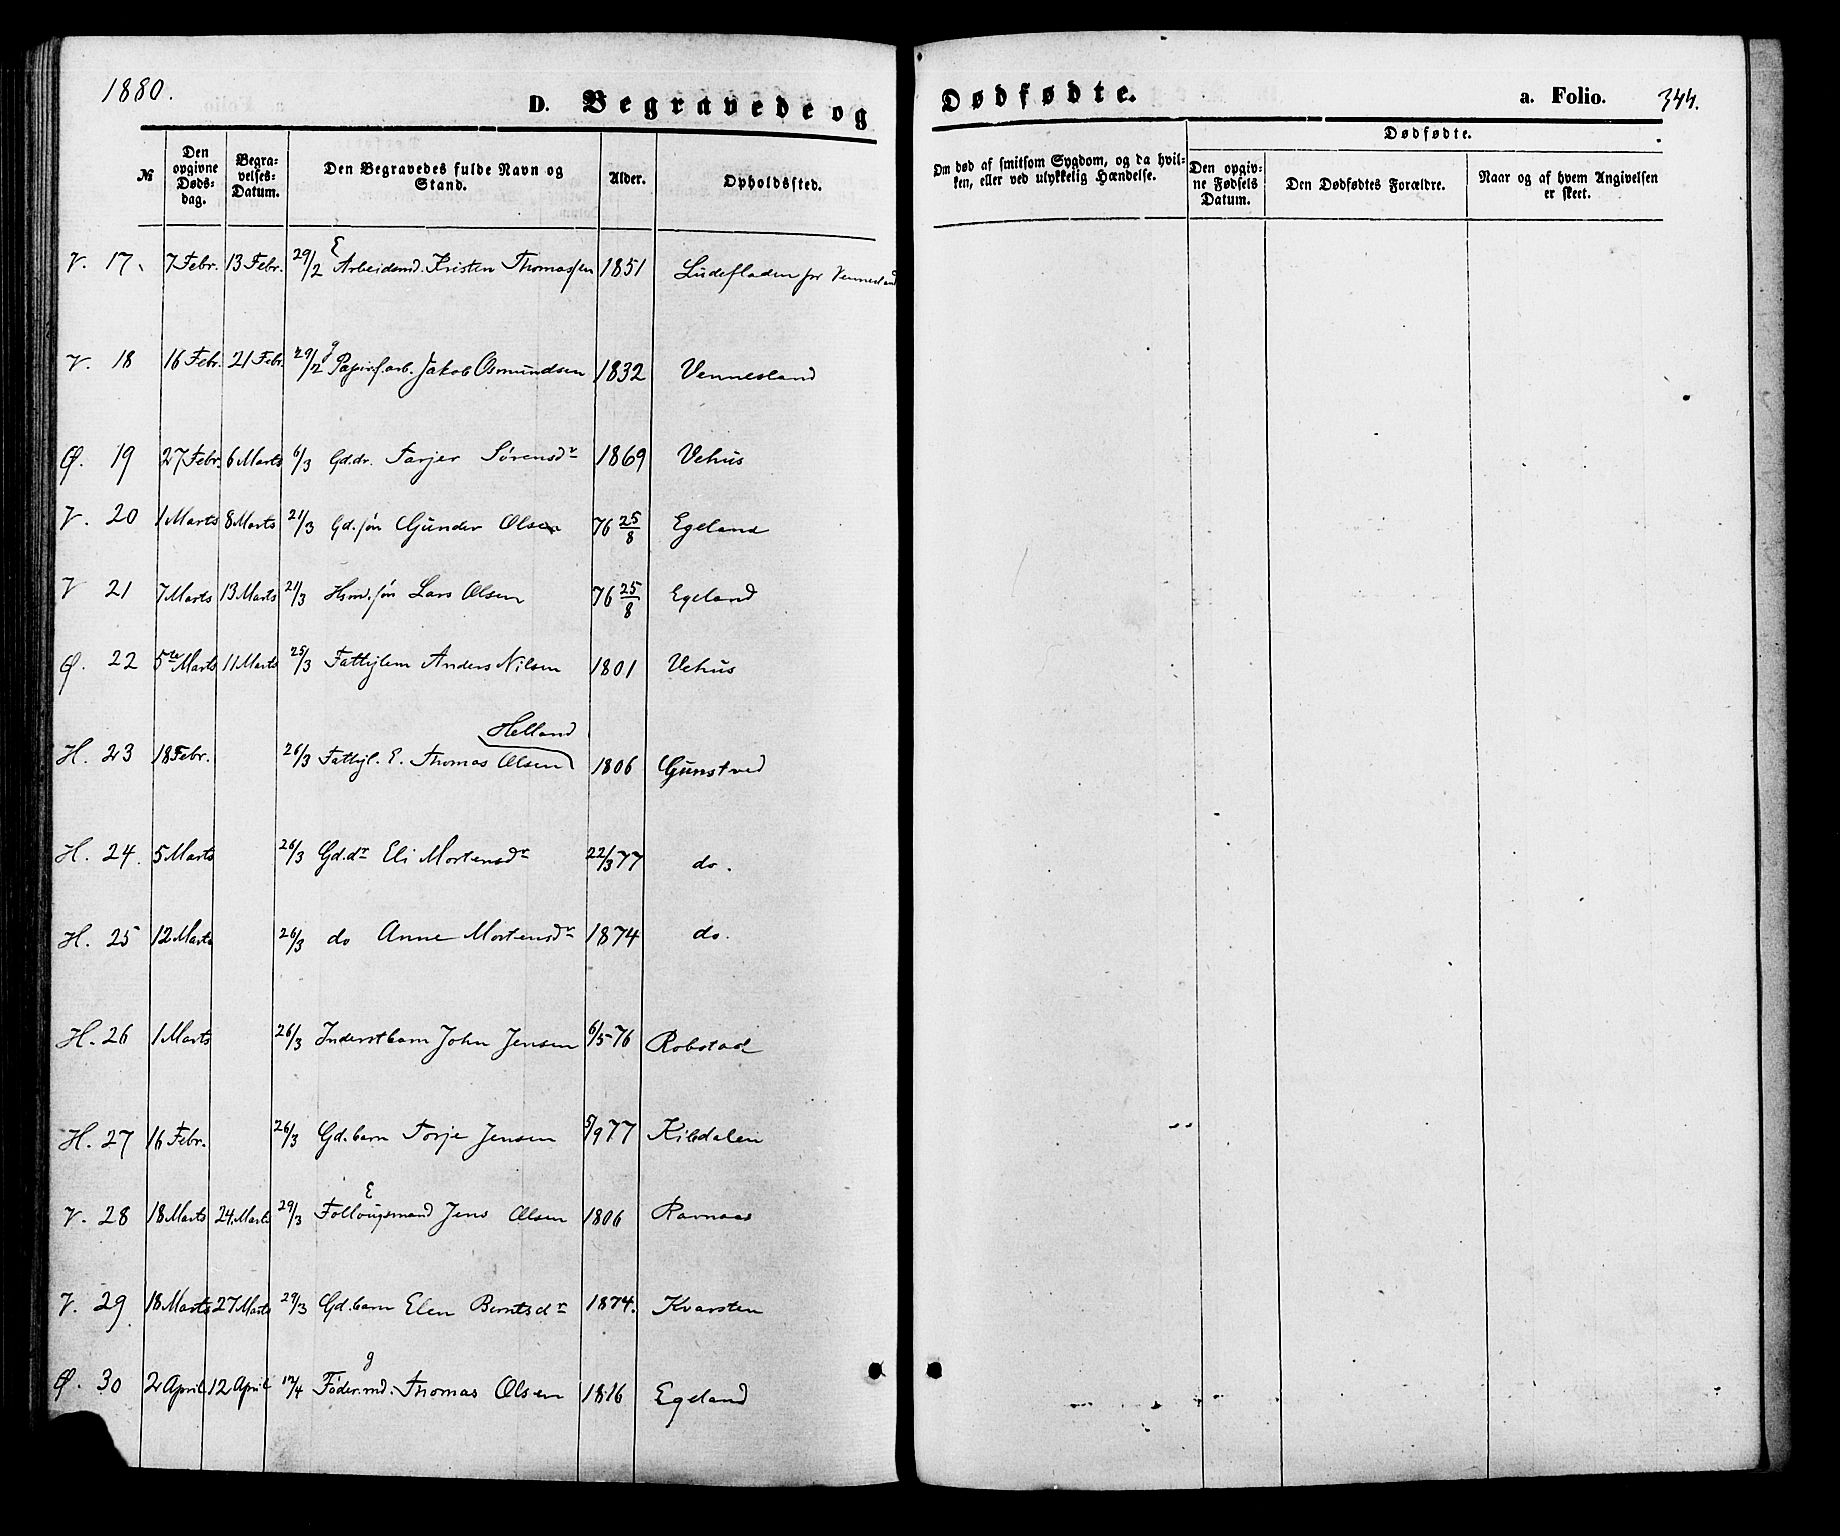 1880.
D. Begravede og Dødfødte. a. Folio. 344.
№ Den opgivne Døds-dag. Begra-velses-Datum. Den Begravedes fulde Navn og Stand. Alder. Opholdssted. Om død af smitsom Sygdom, og da hvil-ken, eller ved ulykkelig Hændelse. Dødfødte. Den opgiv-ne Fødsels Datum. Den Dødfødtes Forældre. Naar og af hvem Angivelsen er skeet.
V. 17. 7 Febr. 13 Febr. 29/2 E Arbeidsmd. Kristen Thomassen 1851 Ludefladen for Vennesland
V. 18 16 Febr. 21 Febr. 29/2 g Papirf.arb. Jakob Osmundsen 1832 Vennesland
Ø. 19 27 Febr. 6 Marts 6/3 Gd.dr. Tarjer Sørensdr 1869 Vehus
V. 20 1 Marts 8 Marts 21/3 Gd.søn Gunder Olsen 76 25/8 Egeland
V 21 7 Marts 13 Marts 21/3 Hsmd.søn Lars Olsen 76 25/8 Egeland
Ø. 22 5te Marts 11 Marts 25/3 Fattiglem Anders Nilsen 1801 Vehus
Helland
H. 23 18 Febr. 26/3 Fattigl. E. Thomas Olsen 1806 Gunstved
H. 24. 5 Marts 26/3 Gd.dr Eli Mortensdr 22/3 77 do.
H. 25 12 Marts 26/3 do Anne Mortensdr 1874 do.
H. 26 1 Marts 26/3 Inderstbarn John Jensen 6/5-76 Robstad
H. 27 16 Febr. 26/3 Gd.barn Torje Jensen 5/9 77 Kiledalen
V. 28 18 Marts 24 Marts 29/3 E Follougsmand Jens Olsen 1806 Ravnaas
V. 29 18 Marts 27 Marts 29/3 Gd.barn Elen Berntsdr 1874. Kvarsten
Ø. 30 2 April 12 April 12/4 g Føder.md. Thomas Olsen 1816 Egeland